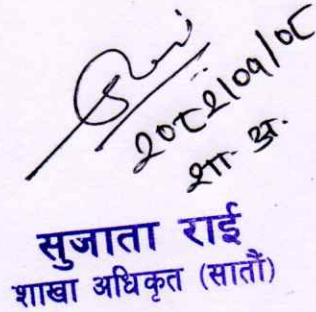 २०८२/०१/०८
शा. अ.
सुजाता राई
शाखा अधिकृत (सातौं)